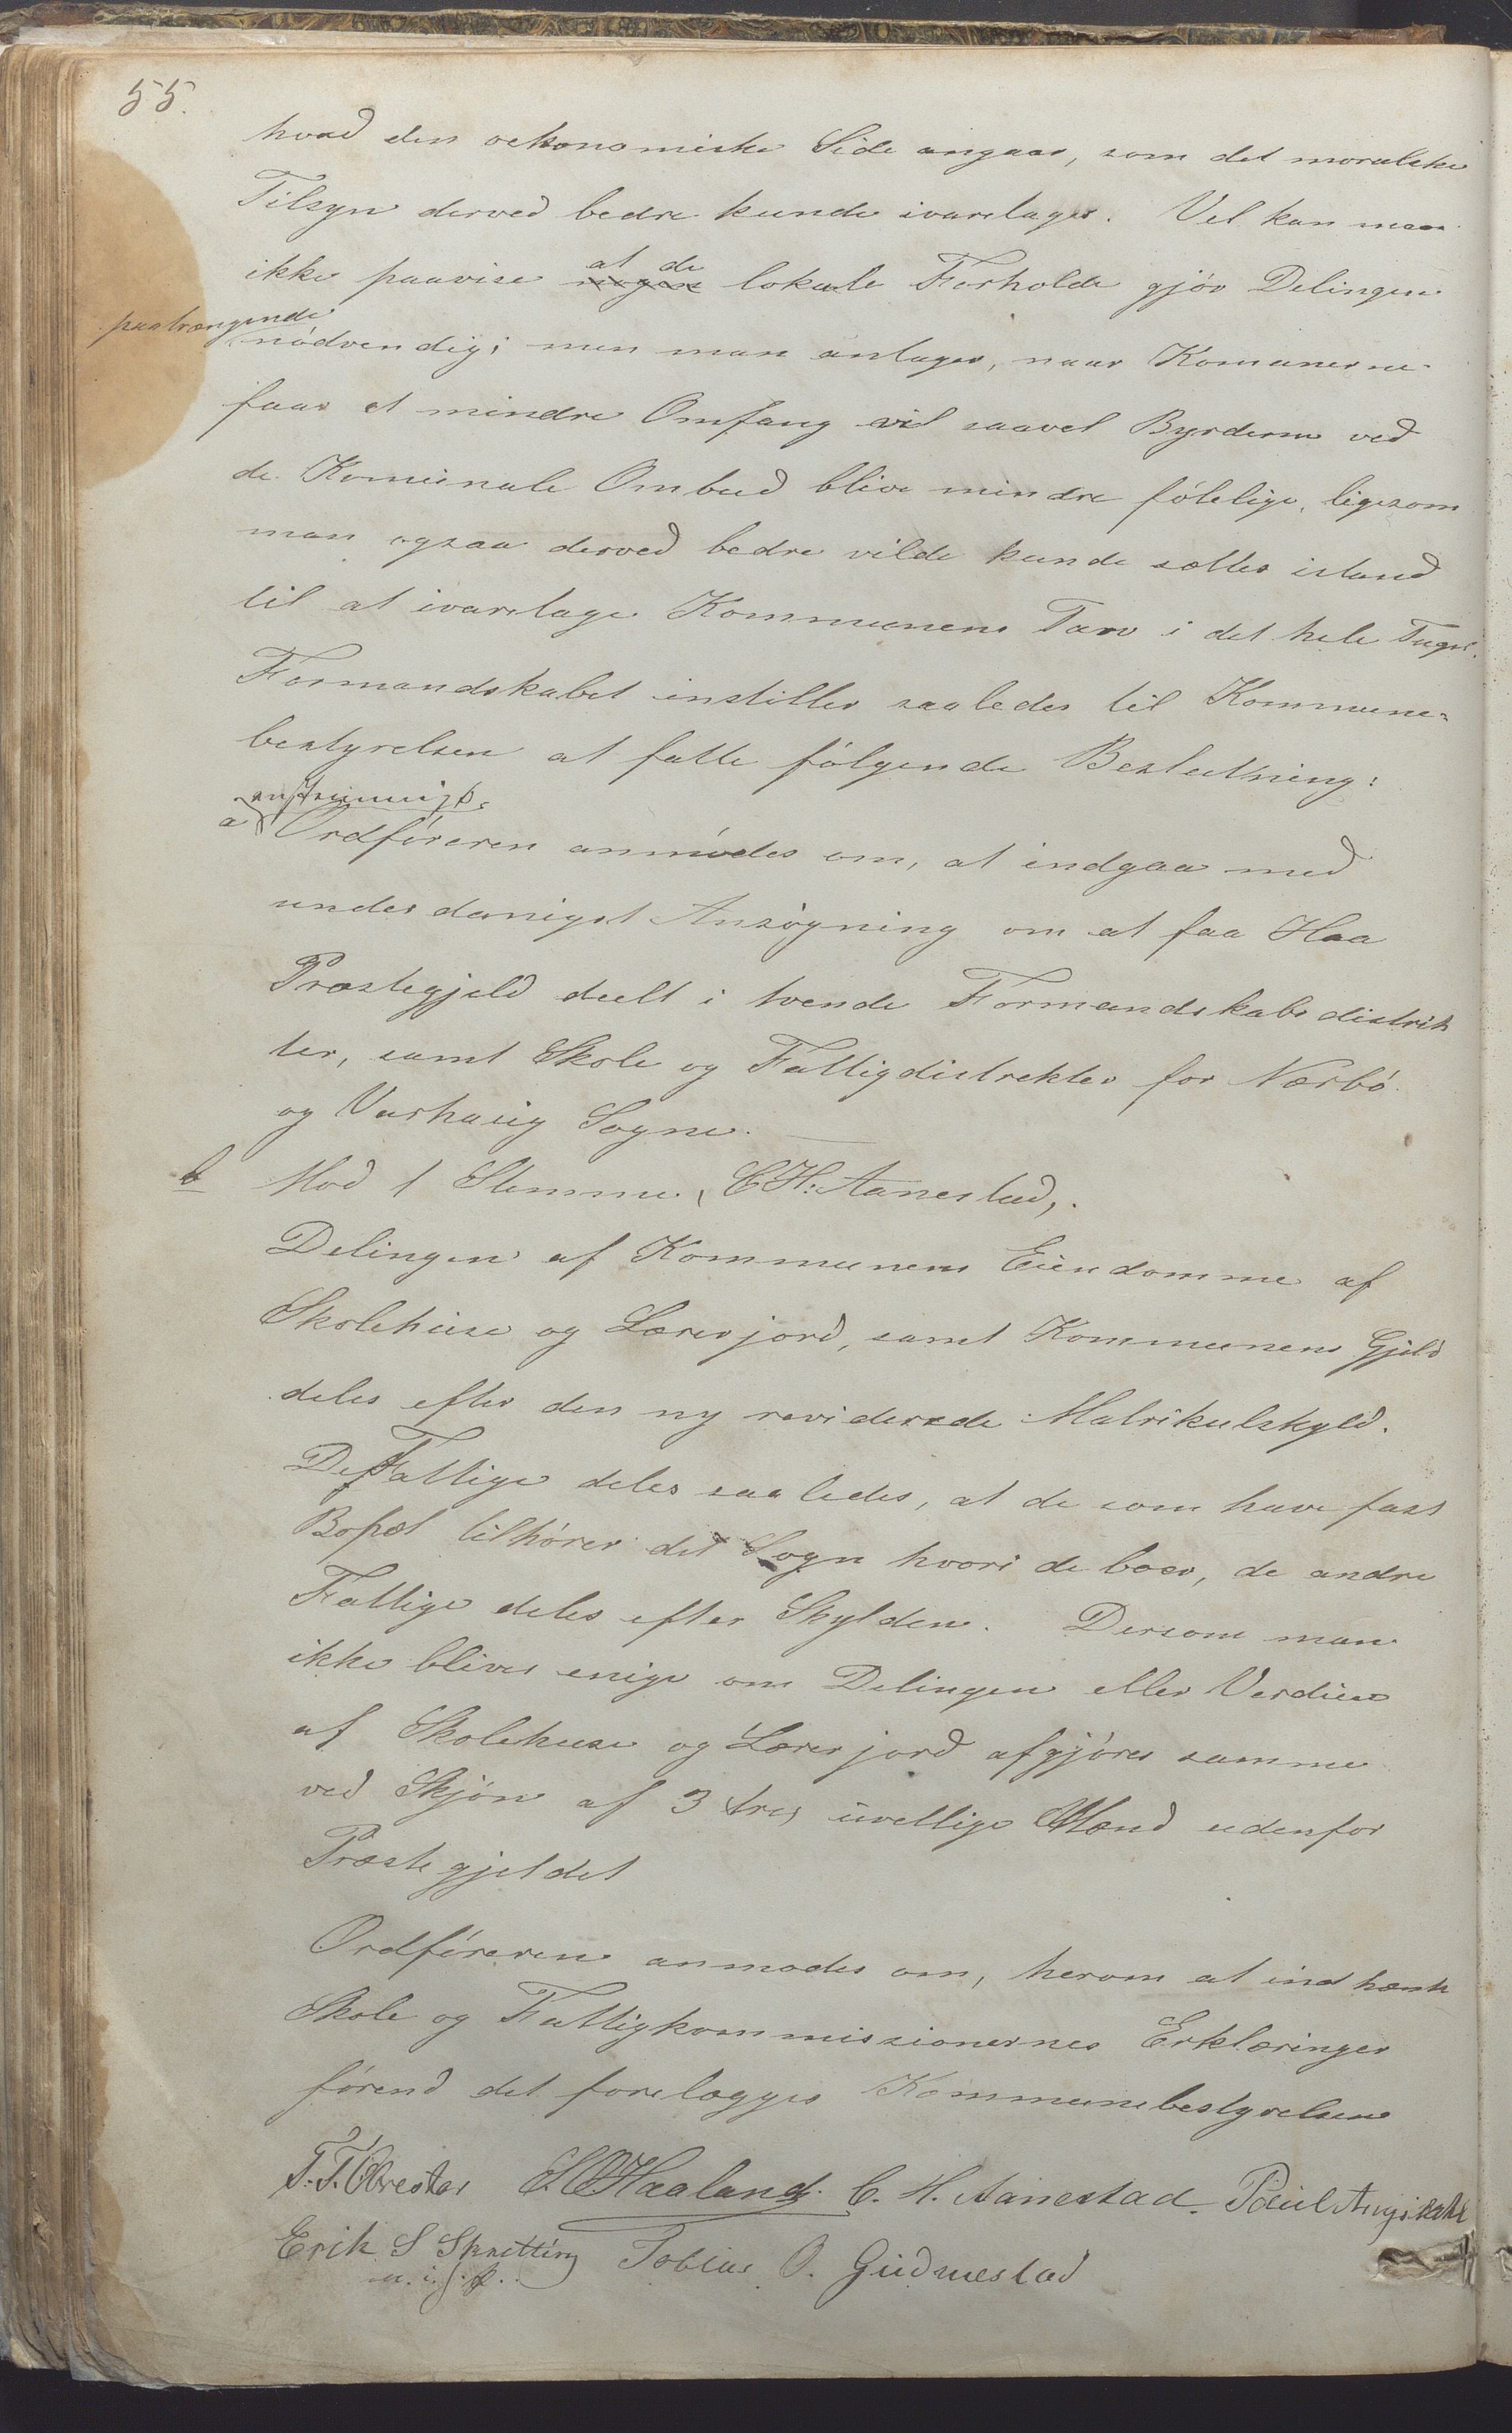 55.
hvad den oekonomiske Side angaar, som det moralske
Tilsyn derved bedre kunde ivaretages. Vel kan man
ikke paavise at de lokale Forholde gjör Delingen
paatrængende
nödvendig; men man antager, naar Komunerne
faar et mindre Omfang vil saavel Byrderne ved
de Komunale Ombud blive mindre fölelige, ligesom
man ogsaa derved bedre vilde kunde sættes istand
til at ivaretage Kommunens Tarv i det hele Taget.
Formandskabet instiller saaledes til Kommune-
bestyrelsen at fatte fölgende Beslutning:
enstemmigt.
a Ordföreren anmodes om, at indgaa med
underdanigst Ansögning om at faa Haa
Præstegjeld deelt i tvende Formandskabsdistrik
ter, samt Skole og Fattigdistrekter for Nærbö
og Varhaug Sogne.
b Mod 1 Stemme, C H: Aanestad,.
Delingen af Kommunens Eiendomme af
Skolehuse og Lærerjord, samt Kommunens Gjeld
deles efter den ny reviderede Matrikulskyld.
De Fattige deles saaledes, at de som have fast
Bopæl tilhörer det Sogn hvori de boer, de andre
Fattige deles efter Skylden. Dersom man
ikke bliver enige om Delingen eller Verdien
af Skolehuse og Lærerjord afgjöres samme
ved Skjön af 3 tre, uvillige Mænd udenfor
Præstegjeldet
Ordföreren anmodes om, herom at indhente
Skole og Fattigkommissionernes Erklæringer
förend det forelægges Kommunebestyrelsen
T. T. Obrestad O Haaland. C. H. Aanestad. Paul
Erik S Skretting Tobias O. Gudmestad
m. i. f. p.